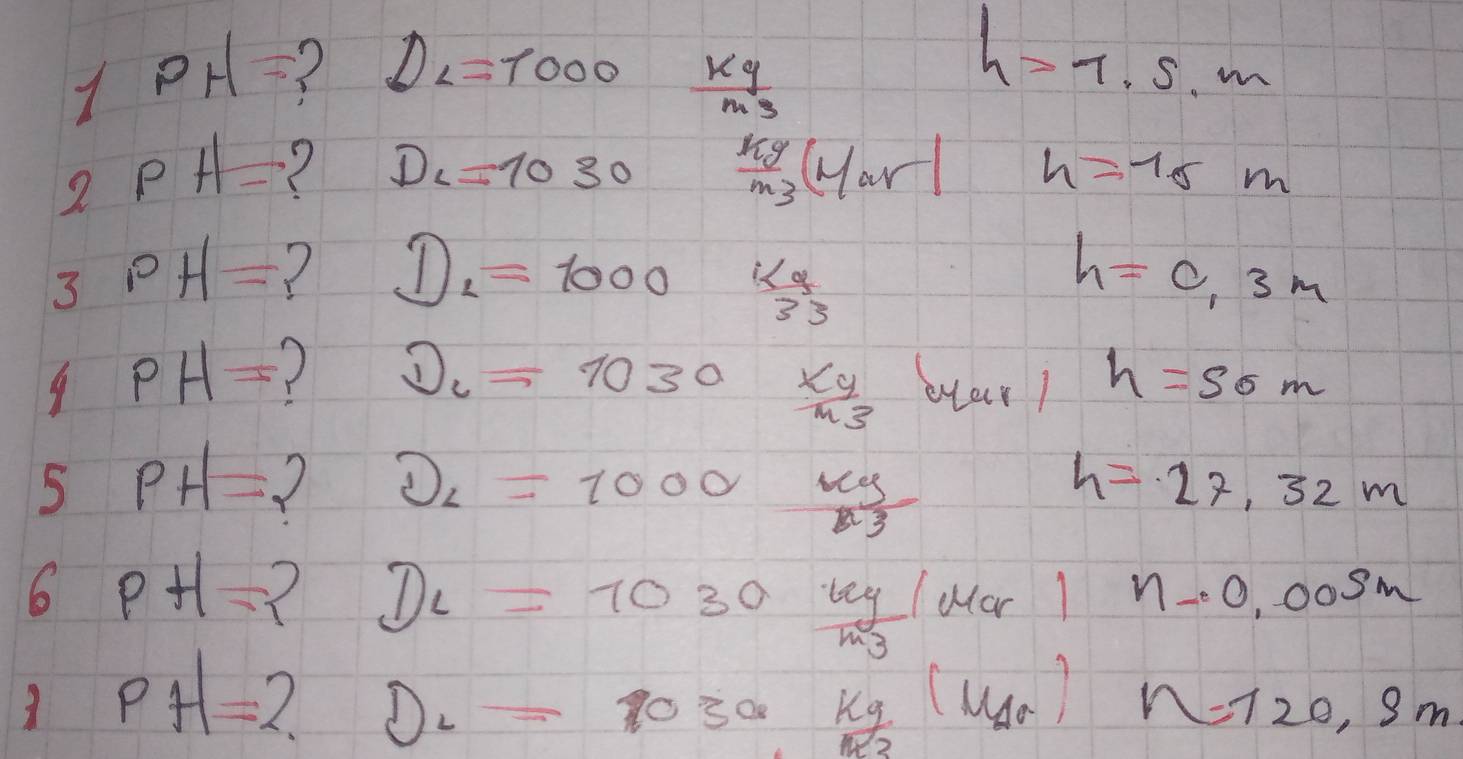 1 PH=? DL=1000 kg/m3 h=1.5.m
2 PH=? DL=1030 kg/m3 (Mar) h=15 m
3 PH=? DL=1000 kg/33 h=0,3m
4 PH=? DL=1030 kg/m3 (Mar) h=50 m
5 PH=? DL=1000 kg/m3 h=27,32 m
6 PH=? DL=1030 kg/m3 (Mar) h=0,005m
7 PH=? DL=1030 kg/m3 (Mar) h=120,5m.